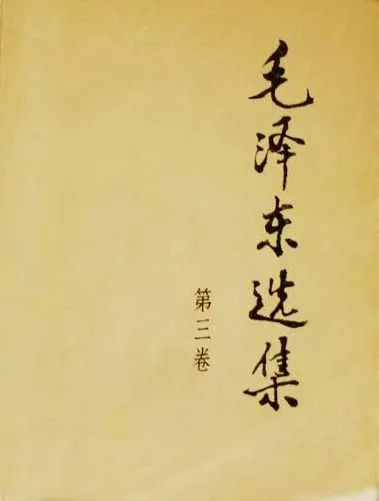 毛泽东选集
第三卷